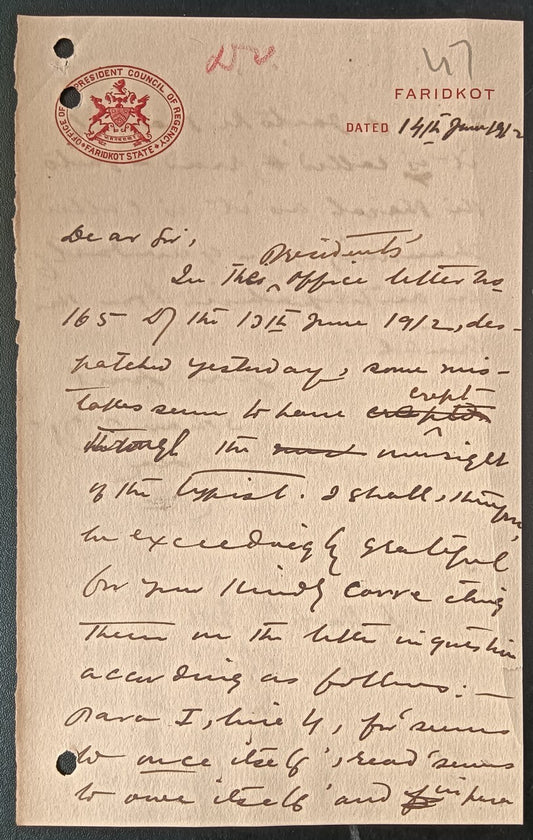 D.O.
47
OFFICE OF PRESIDENT COUNCIL OF REGENCY
FARIDKOT STATE
FARIDKOT
DATED 14th June 1912
Dear Sir,
Presidents'
In this office letter No
165 of the 13th June 1912, des-
patched yesterday, some mis-
takes seem to have crept
through the oversight
of the typist. I shall, therefore,
be exceedingly grateful
for your kindly correcting
them in the letter in question
according as follows:—
Para I, line 4, for 'seems
to once itself', read 'seems
to owe itself' and in para